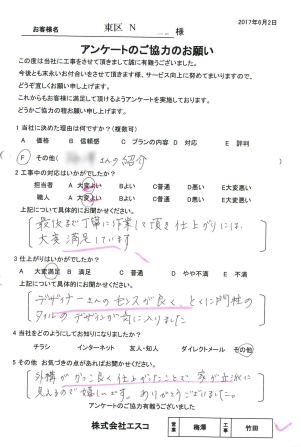 2017年6月2日
お客様名 東区 N 様
アンケートのご協力のお願い
この度は当社に工事をさせて頂きまして誠に有難うございました。
今後とも末永いお付合いをさせて頂きます様、サービス向上に努めてまいりますので、
どうぞ宜しくお願い申し上げます。
これからもお客様に満足して頂けるようアンケートを実施しております。
どうかご協力の程お願い申し上げます。
1 当社に決めた理由は何ですか?(複数可)
A 価格 B 信頼感 C プランの内容 D 対応 E 評判
F その他( さんの紹介 )
2 工事中の対応はいかがでしたか?
担当者 A 大変よい B よい C 普通 D 悪い E 大変悪い
職人 A 大変よい B よい C 普通 D 悪い E 大変悪い
上記について具体的にお聞かせください。
最後まで丁寧に作業して頂き仕上がりには、
大変満足しています
3 仕上がりはいかがでしたか?
A 大変満足 B 満足 C 普通 D やや不満 E 不満
上記について具体的にお聞かせください。
デザイナーさんのセンスが良く、とくに門柱の
タイルのデザインが気に入りました
4 当社をどのようにしてお知りになりましたか?
チラシ インターネット 友人・知人 ダイレクトメール その他
5 その他 お気づきの点があればお聞かせください。
外構がかっこ良く仕上がったことで 家が立派に
見えるので嬉しいです。ありがとうございました。
アンケートのご協力有難うございました
株式会社エスコ 営業 梅澤 工事 竹田